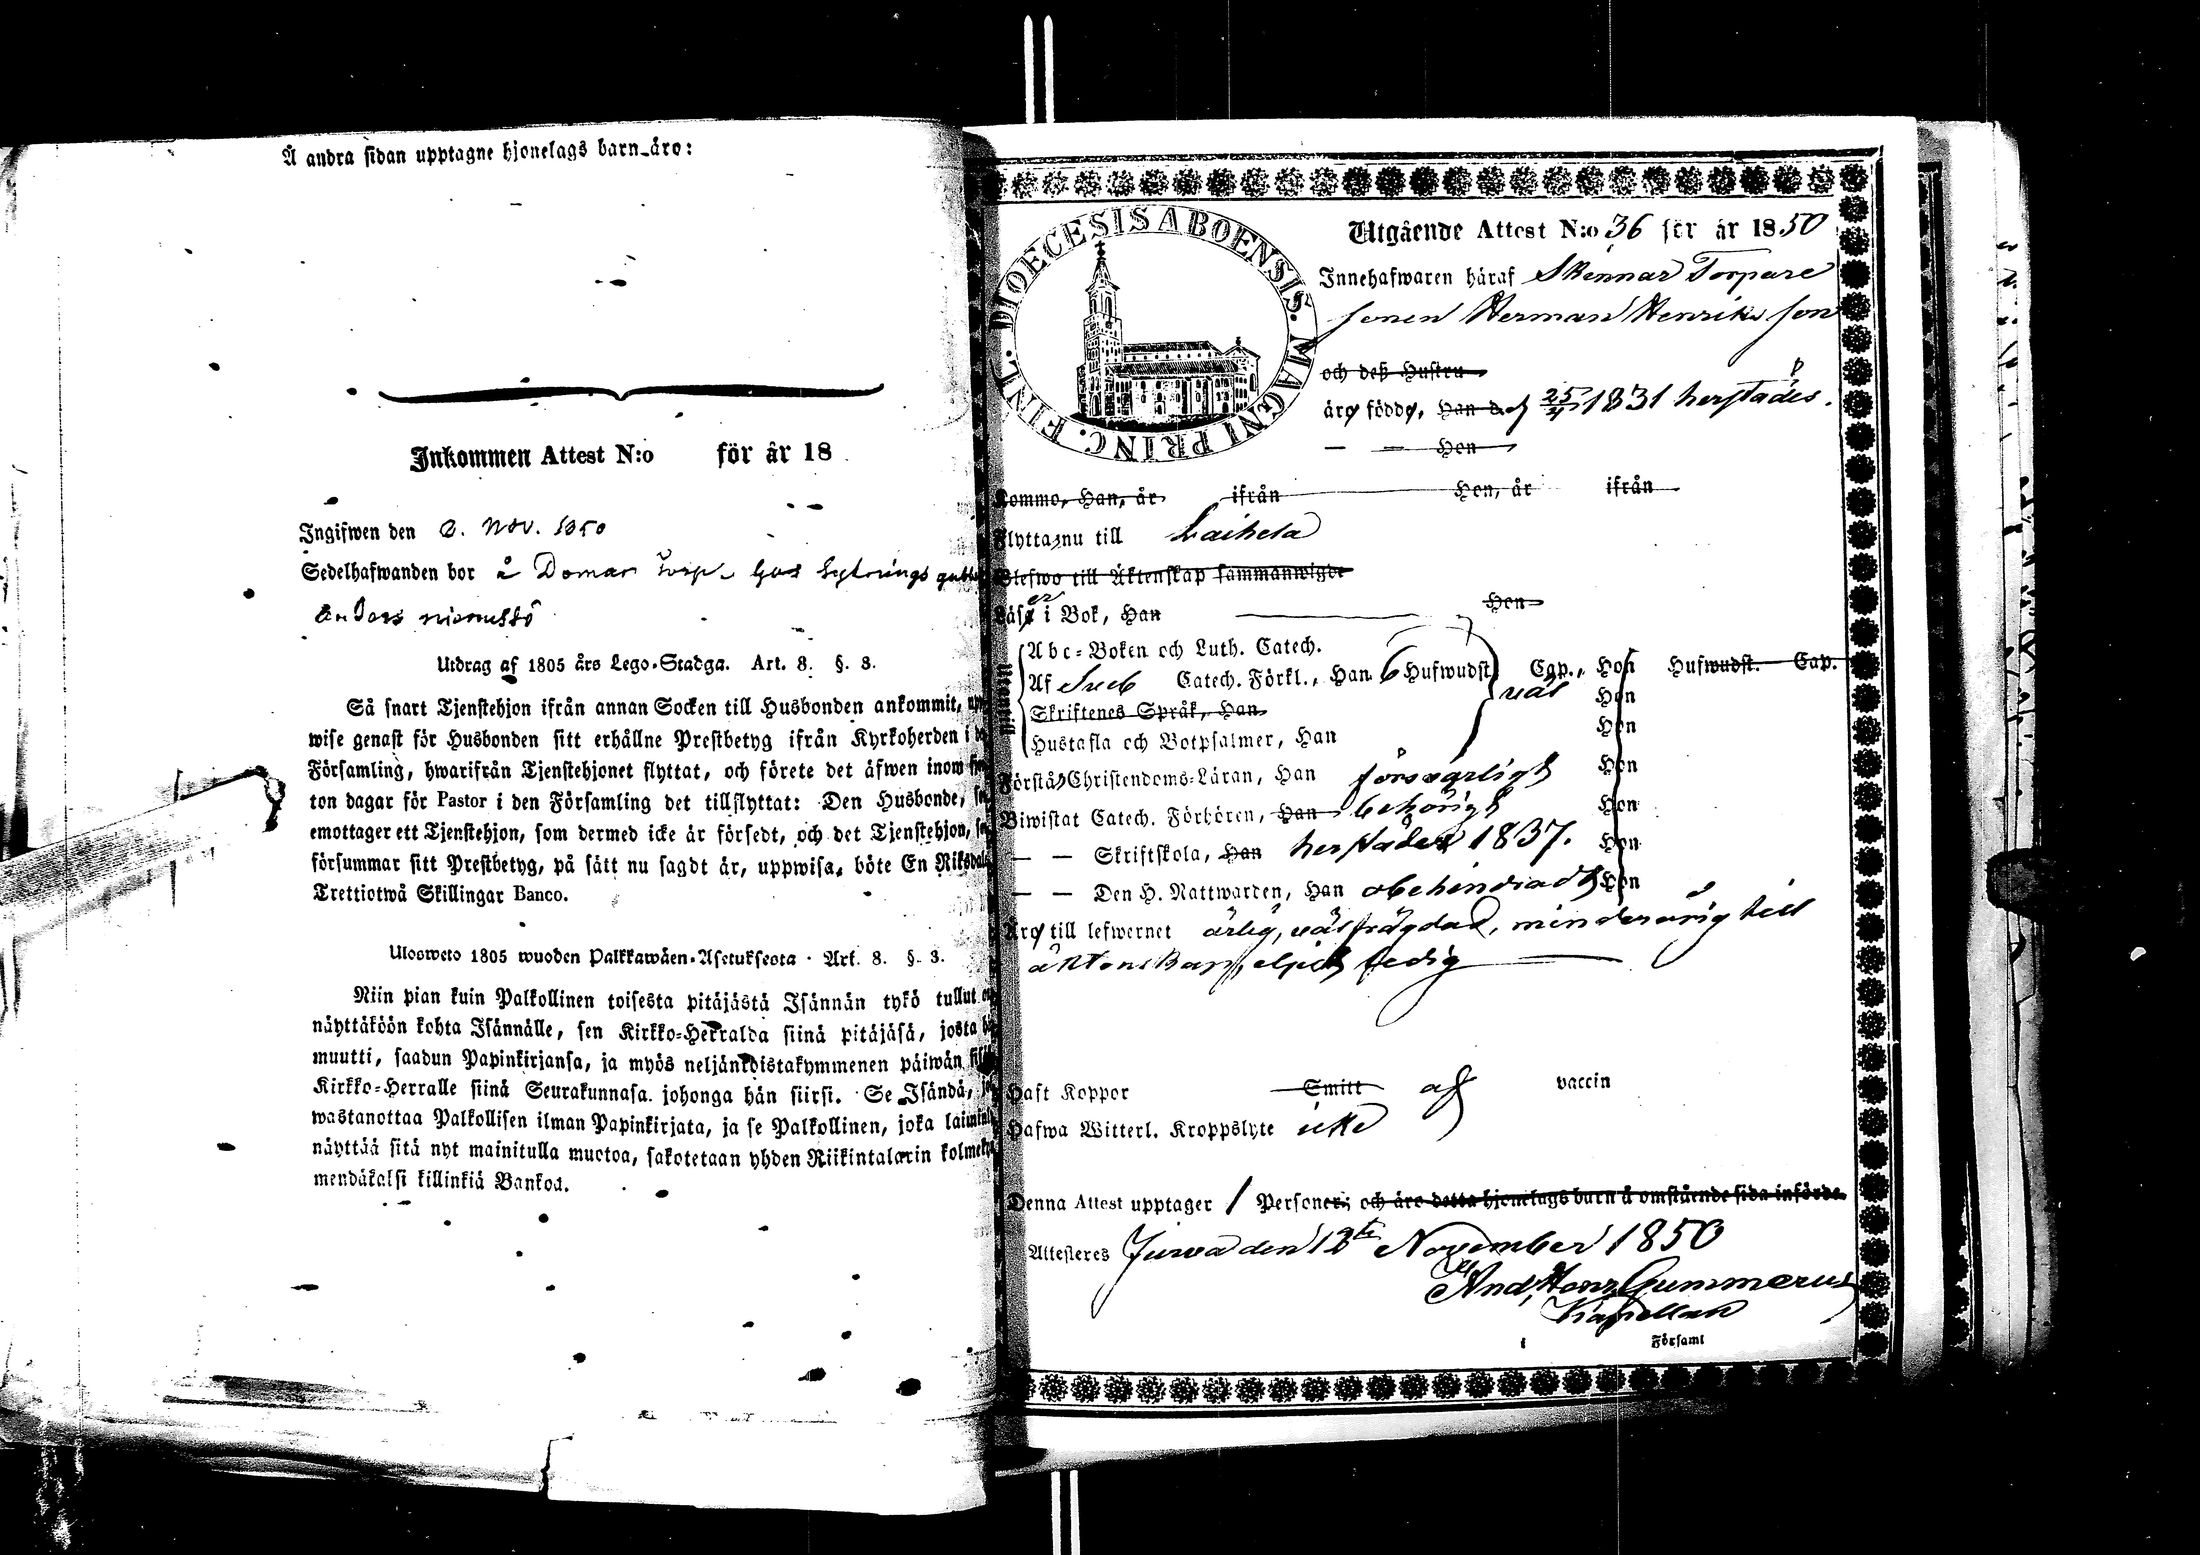 Å andra sidan upptagne hjonelags barn äro:
Inkommen Attest N:o för år 18
Ingifwen den Nov. 1850
Sedelhafwanden bor å Domar Torp. hos Sytnings
Anders
Utdrag af 1805 års Lego-Stadga. Art. 8. §. 3.
Så snart Tjenstehjon ifrån annan Socken till Husbonden ankommit,
wise genast för Husbonden sitt erhållne Prestbetyg ifrån Kyrkoherden i
Församling, hwarifrån Tjenstehjonet flyttat, och förete det äfwen inom
ton dagar för Pastor i den Församling det tillflyttat: Den Husbonde,
emottager ett Tjenstehjon, som dermed icke är försedt, och det Tjenstehjon,
försummar sitt Prestbetyg, på sätt nu sagdt är, uppwisa, böte En
Trettiotwå Skillingar Banco.
Ulosweto 1805 wuoden Palkkawäen-Asetuksesta. Art. 8. §. 3.
Niin pian kuin Palkollinen toisesta pitäjästä Isännän tykö tullut
näyttäköön kohta Isännälle, sen Kirkko-Herralda siinä pitäjäsä, josta
muutti, saadun Papinkirjansa, ja myös neljänkoistakymmenen päiwän
Kirkko-Herralle siinä Seurakunnasa. johonga hän siirsi. Se Isändä,
wastanottaa Palkollisen ilman Papinkirjata, ja se Palkollinen, joka
näyttää sitä nyt mainitulla muotoa, sakotetaan yhden Riikintalarin
mendäkalsi killinkiä Bankoa.
DIOECESIS ABOENSIS. MAGNI PRINC. FINL.
Utgående Attest N:o 36 för år 1850
Innehafwaren häraf Skinnar Torpare
sonen Herman Henriksson
och deß Hustru
äro födde, Han d. 25/4 1831 herstädes.
— — Hon
Kommo, Han, år ifrån Hon, år ifrån
Flytta nu till Laihela
Blefwo till Äktenskap sammanwigde
Läser i Bok, Han Hon
Utantill
Abc-Boken och Luth. Catech.
Af Sveb Catech. Förkl., Han 6 Hufwudst. Cap., Hon Hufwudst. Cap.
väl Hon
Skriftenes Språk, Han
Hustafla och Botpsalmer, Han Hon
Förstå Christendoms-Läran, Han försvarligt Hon
Biwistat Catech. Förhören, Han behörigt Hon
— — Skriftskola, Han herstädes 1837. Hon
— — Den H. Nattwarden, Han obehindradt Hon
Äro till lefwernet ärlig, välfrägdad, minderårig till
äktenskap, eljest ledig
Haft Koppor Smitt af vaccin
Hafwa Witterl. Kroppslyte icke
Denna Attest upptager 1 Personer; och äro detta hjonelags barn å omstående sida införde.
Attesteras Jurva den November 1850
And. Gummerus
Kapellan
i Församl